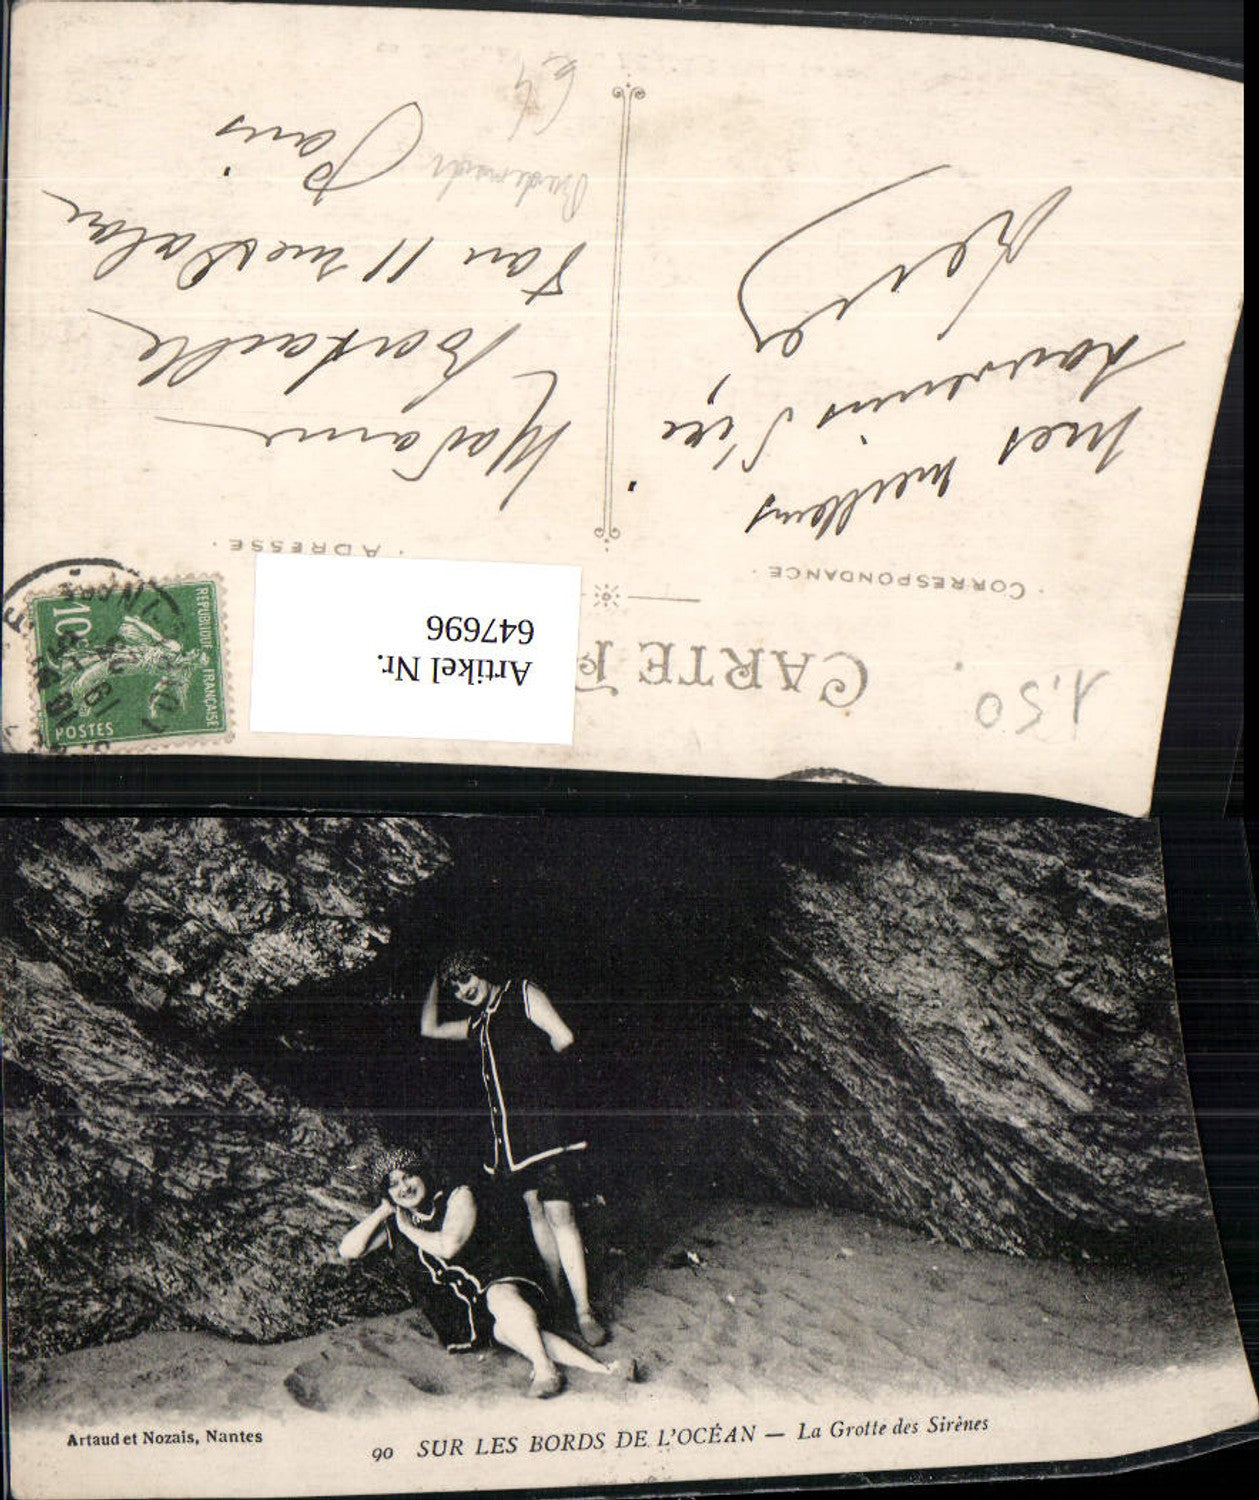 CARTE P
Artikel Nr.
647696
1,50
CORRESPONDANCE
ADRESSE
Mes meilleurs
souvenirs d'ici
Madame
Bataille
11
Paris
REPUBLIQUE FRANÇAISE
10c
POSTES
Artaud et Nozais, Nantes
90 SUR LES BORDS DE L'OCÉAN — La Grotte des Sirènes